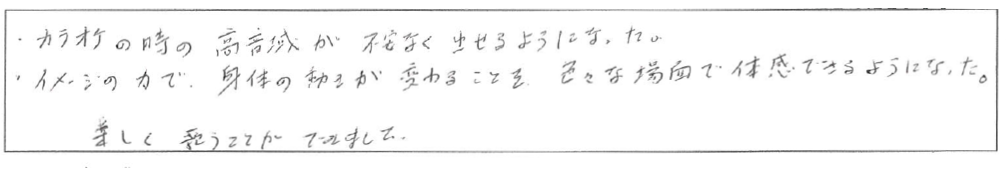 ・カラオケの時の高音域が不安なく出せるようになった。
・イメージの力で、身体の動きが変わることを、色々な場面で体感できるようになった。
楽しく歌うことができました。